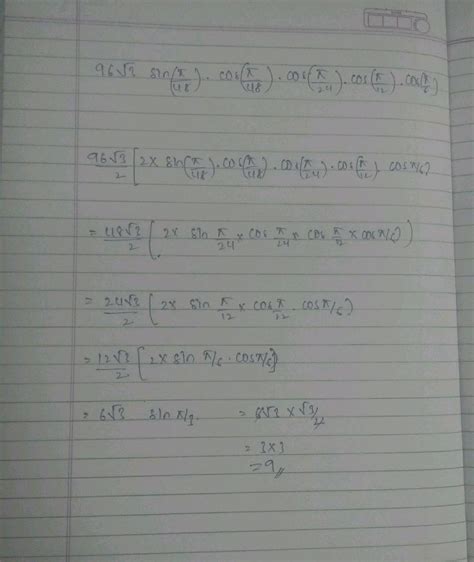 96√3 sin(π/48) . cos(π/48) . cos(π/24) . cos(π/12) . cos(π/6)
96√3/2 [2 x sin(π/48) . cos(π/48) . cos(π/24) . cos(π/12) cos π/6]
= 48√3/2 (2 x sin π/24 x cos π/24 x cos π/12 x cos π/6)
= 24√3/2 (2 x sin π/12 x cos π/12 . cos π/6)
= 12√3/2 [2 x sin π/6 . cos π/6]
= 6√3 sin π/3. = 6√3 x √3/2
= 3 x 3
= 9